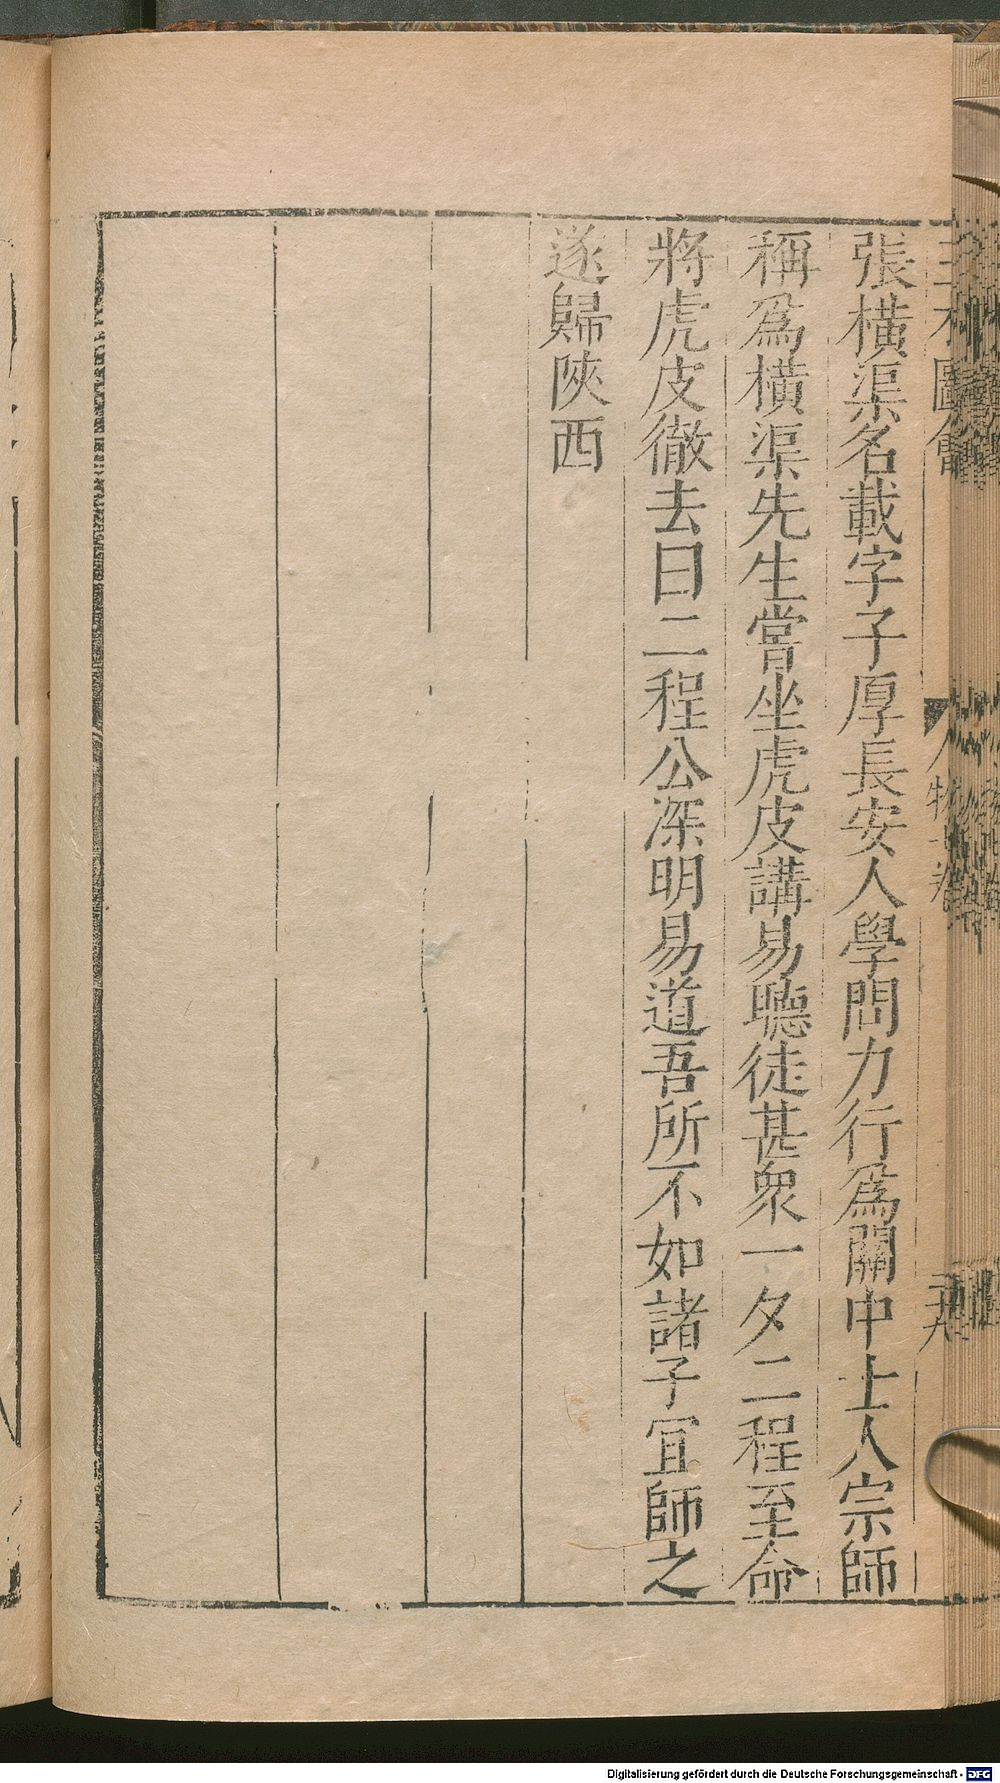 張橫渠名載字子厚長安人學問力行爲關中士人宗師
稱爲橫渠先生嘗坐虎皮講易聽徒甚衆一夕二程至命
將虎皮徹去曰二程公深明易道吾所不如諸子宜師之
遂歸陝西
圖會
人物
Digitalisierung gefördert durch die Deutsche Forschungsgemeinschaft - DFG